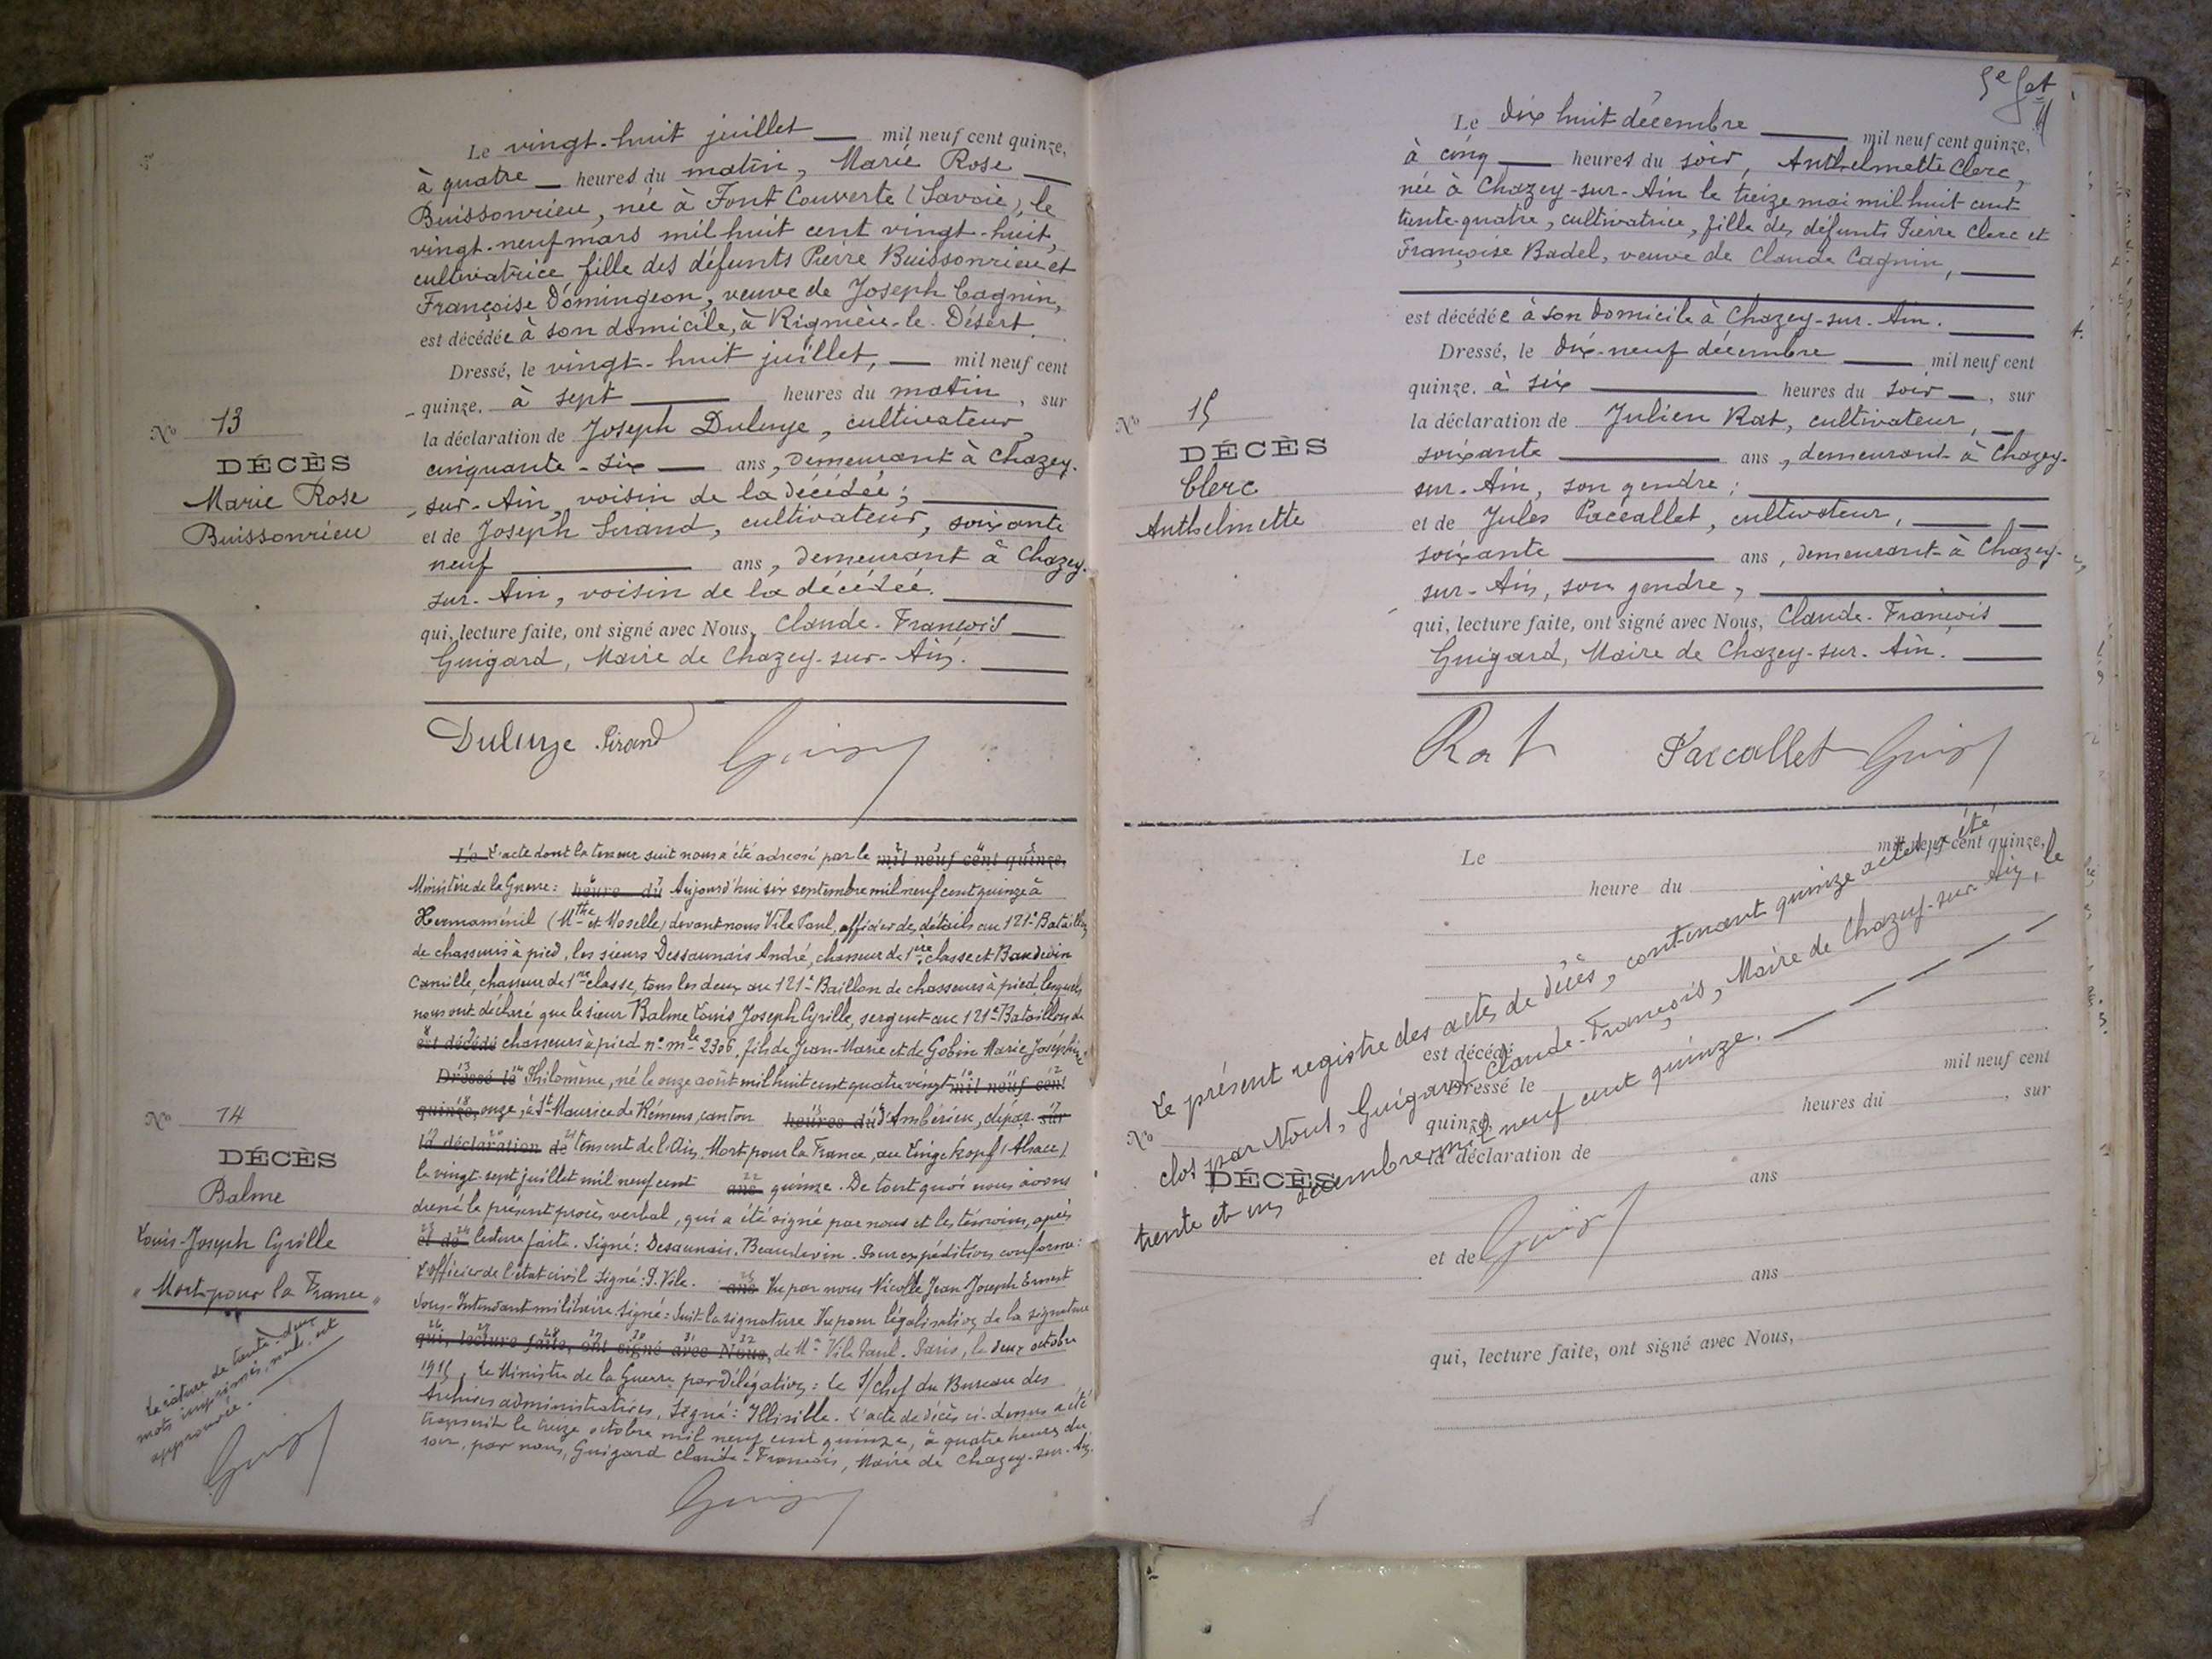 Le vingt-huit juillet — mil neuf cent quinze,
à quatre — heures du matin, Marie Rose —
Buissonrieu, née à Font Couverte (Savoie), le
vingt-neuf mars mil huit cent vingt-huit,
cultivatrice, fille des défunts Pierre Buissonrieu et
Françoise Domingeon, veuve de Joseph Cagnin,
est décédée à son domicile, à Rignieu-le-Désert.
Dressé, le vingt-huit juillet, — mil neuf cent
quinze, à sept — heures du matin, sur
la déclaration de Joseph Duluye, cultivateur,
cinquante-six — ans, demeurant à Chazey-
sur-Ain, voisin de la décédée; —
et de Joseph Sirand, cultivateur, soixante
neuf — ans, demeurant à Chazey-
sur-Ain, voisin de la décédée. —
qui, lecture faite, ont signé avec Nous, Claude-François —
Guigard, Maire de Chazey-sur-Ain. —
Sirand
No 13
DÉCÈS
Marie Rose
Buissonrieu
Le L'acte dont la teneur suit nous a été adressé par le mil neuf cent quinze,
Ministère de la Guerre: heure du Aujourd'hui six septembre mil neuf cent quinze à
Herméménil (Mthe et Moselle) devant nous Vile Paul, officier de détails au 121e Bataillon
de chasseurs à pied, les sieurs Dessaunais André, chasseur de 1ère classe et Baudevin
Camille, chasseur de 1re classe, tous les deux au 121e Baillon de chasseurs à pied, lesquels
nous ont déclaré que le sieur Balme Louis Joseph Cyrille, sergent au 121e Bataillon de
est décédé chasseurs à pied no mle 2306, fils de Jean-Marie et de Gobin Marie Joséphine
Dressé le Philomène, né le onze août mil huit cent quatre vingt mil neuf cent
quinze, onze, à St Maurice de Rémens, canton heures du d'Ambérieu, dépar- sur
la déclaration de tement de l'Ain, Mort pour la France, au Lingekopf (Alsace)
le vingt sept juillet mil neuf cent ans quinze. De tout quoi nous avons
dressé le présent procès verbal, qui a été signé par nous et les témoins, après
et de lecture faite. Signé: Desaunais, Beaudevin. Pour expédition conforme:
L'officier de l'état civil Signé: P. Vile. ans Vu par nous Nicolle Jean Joseph Ernest
Sous-Intendant militaire. Signé: Suit la signature Vu pour légalisation de la signature
qui, lecture faite, ont signé avec Nous, de Mr Vile Paul. Paris, le deux octobre
1915, Le Ministre de la Guerre par délégation: le S/chef du Bureau des
Archives administratives, Signé: Illisible. L'acte de décès ci-dessus a été
transcrit le treize octobre mil neuf cent quinze, à quatre heures du
soir, par nous, Guigard Claude-François, Maire de Chazey-sur-Ain.
No 14
DÉCÈS
Balme
Louis-Joseph Cyrille
"Mort pour la France"
La rature de trente-deux
mots imprimés, nuls, est
approuvée. —
5e fet
Le dix huit décembre — mil neuf cent quinze,
à cinq — heures du soir, Anthelmette Clerc,
née à Chazey-sur-Ain le treize mai mil huit cent
trente-quatre, cultivatrice, fille des défunts Pierre Clerc et
Françoise Badel, veuve de Claude Cagnin, —
est décédée à son domicile à Chazey-sur-Ain. —
Dressé, le dix-neuf décembre — mil neuf cent
quinze, à six — heures du soir —, sur
la déclaration de Julien Rat, cultivateur, —
soixante — ans, demeurant à Chazey-
sur-Ain, son gendre; —
et de Jules Paccallet, cultivateur, —
soixante — ans, demeurant à Chazey-
sur-Ain, son gendre, —
qui, lecture faite, ont signé avec Nous, Claude-François —
Guigard, Maire de Chazey-sur-Ain. —
Rat Paccallet
No 15
DÉCÈS
Clerc
Anthelmette
Le mil neuf cent quinze,
heure du
est décédé
Dressé le mil neuf cent
quinze, heures du , sur
la déclaration de
ans
et de
ans
qui, lecture faite, ont signé avec Nous,
No
DÉCÈS
Le présent registre des actes de décès, contenant quinze actes, a été
clos par Nous, Guigard Claude-François, Maire de Chazey-sur-Ain, le
trente et un décembre mil neuf cent quinze. — — — —